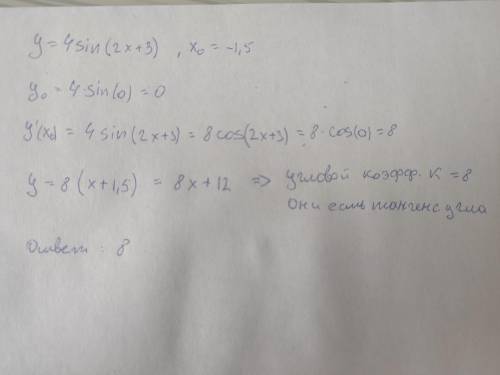 y = 4 sin(2x+3) , x₀ = -1,5
y₀ = 4·sin(0) = 0
y'(x₀) = 4 sin(2x+3) = 8cos(2x+3) = 8·cos(0) = 8
y = 8(x+1,5) = 8x+12 => угловой коэфф. к = 8
Они есть тангенс угла
Ответ: 8